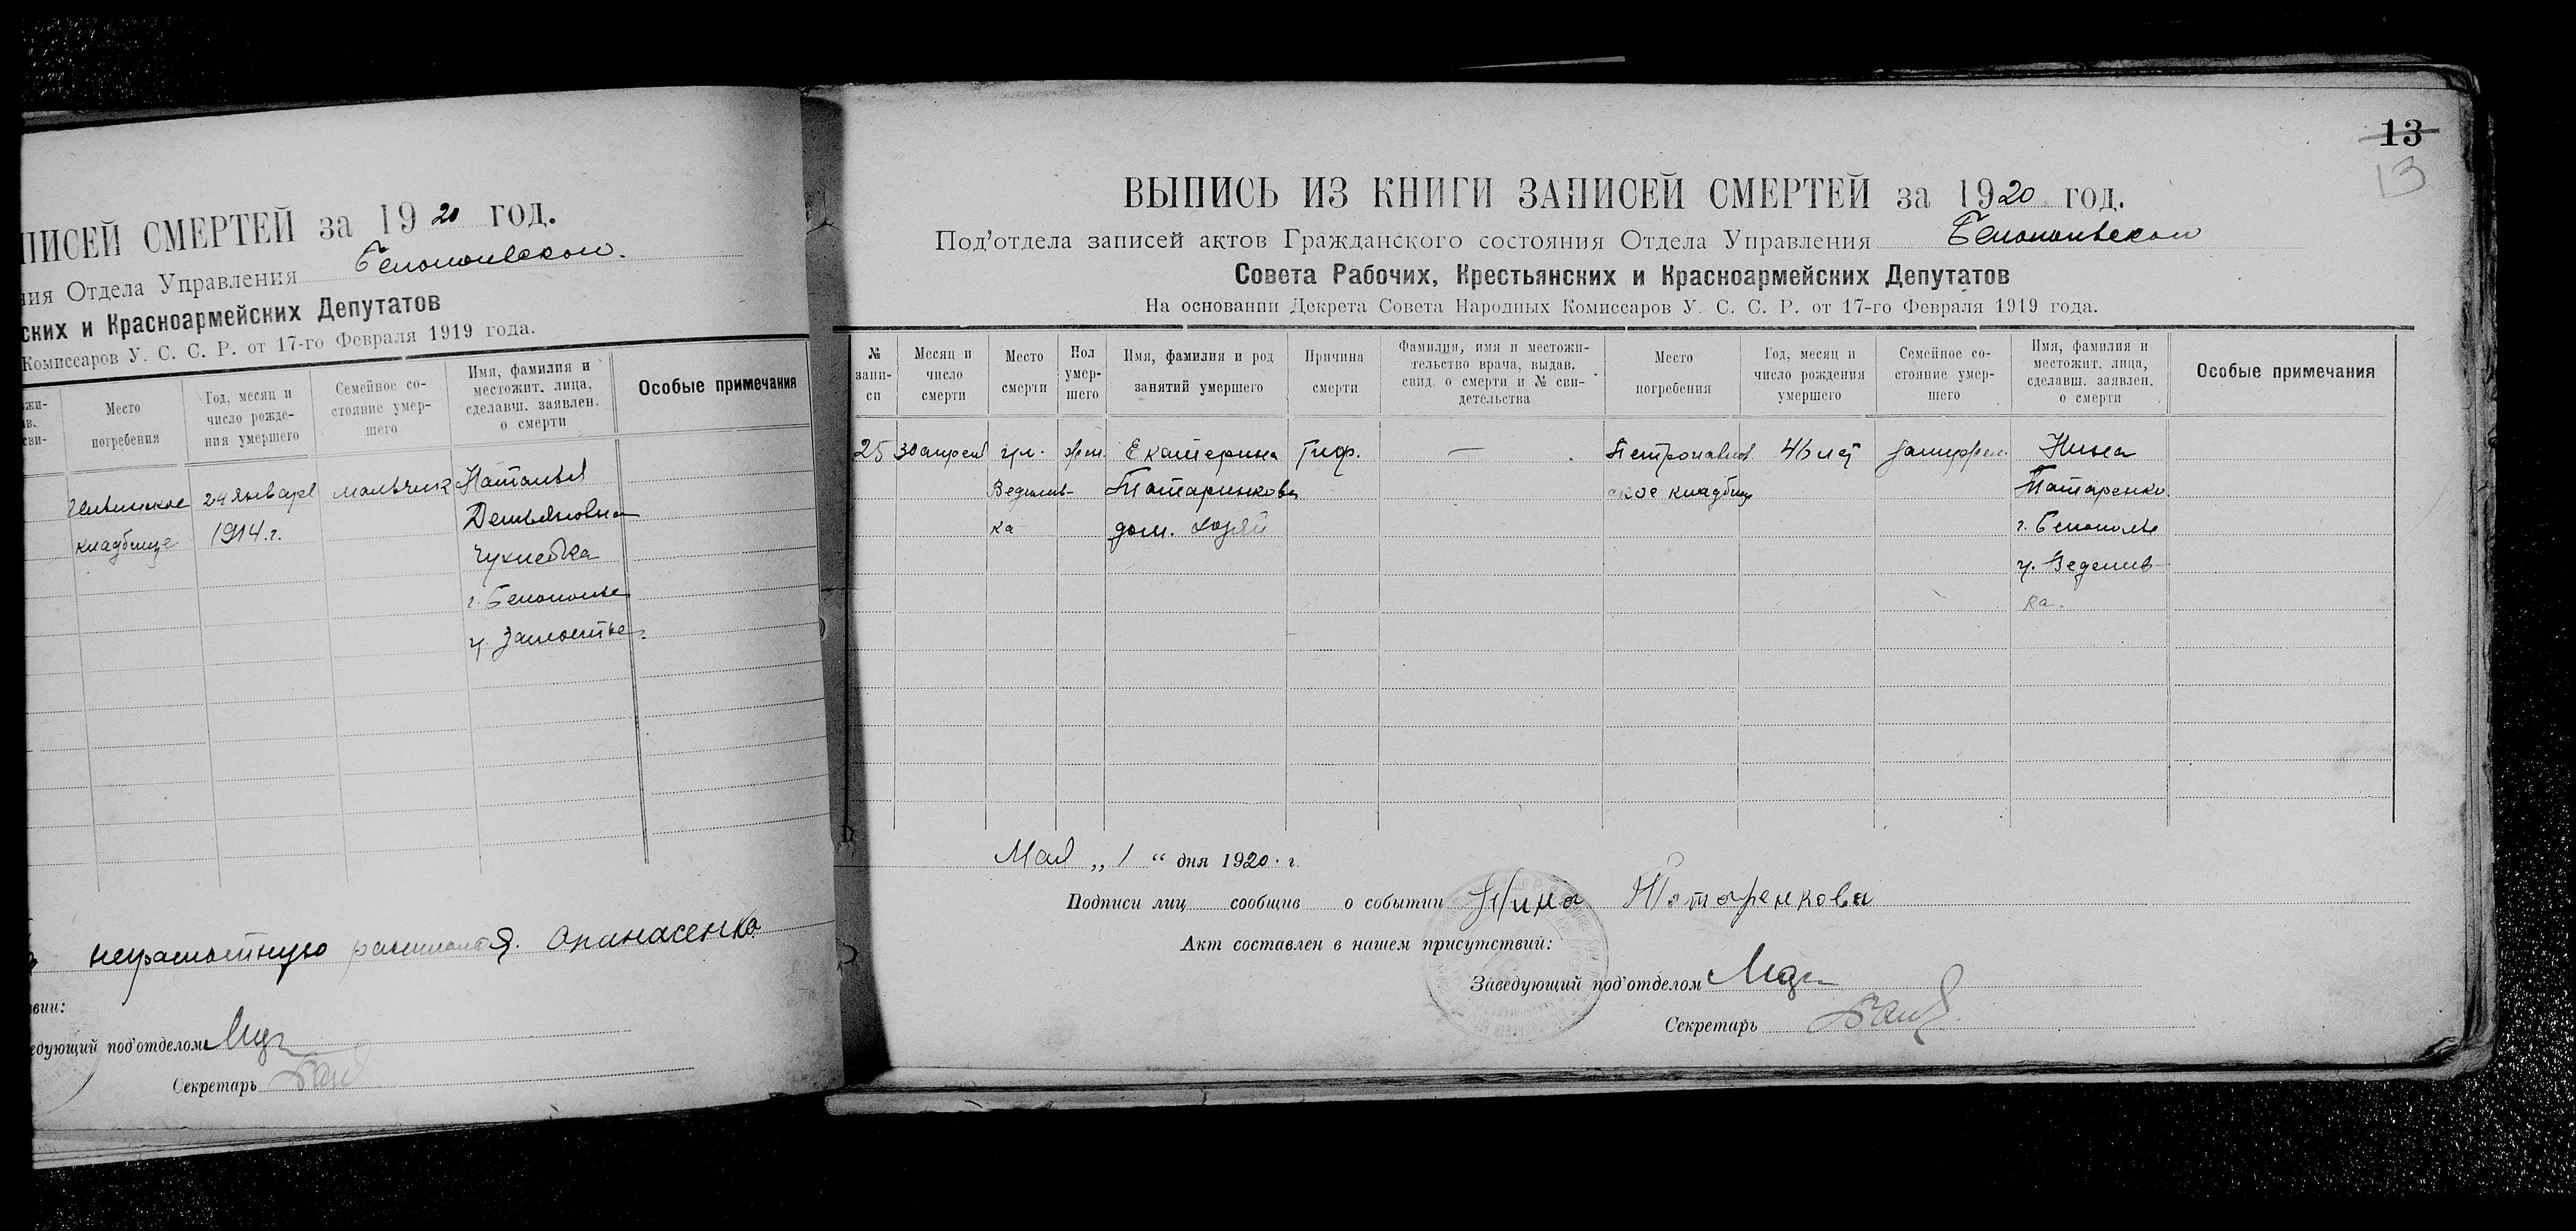 ПИСЕЙ СМЕРТЕЙ за 1920 год.
ния Отдела Управления Белопольском.
ских и Красноармейских Депутатов
Комиссаров У. С. С. Р. от 17-го Февраля 1919 года.
Место погребения
Год, месяц и число рожде- ния умершего
Семейное со- стояние умер- шего
Имя, фамилия и местожит. лица, сделавш. заявлен. о смерти
Особые примечания
кладбище
24 января
1914 г.
мальчик
Наталья
Демьяновна
г. Белополье
ч. Замостье
неграмотную Опанасенко
едующий под'отделом
Секретарь
13
13
ВЫПИСЬ ИЗ КНИГИ ЗАПИСЕЙ СМЕРТЕЙ за 1920 год.
Под'отдела записей актов Гражданского состояния Отдела Управления Белопольском
Совета Рабочих, Крестьянских и Красноармейских Депутатов
На основании Декрета Совета Народных Комиссаров У. С. С. Р. от 17-го Февраля 1919 года.
№ запи- си
Месяц и число смерти
Место смерти
Пол умер- шего
Имя, фамилия и род занятий умершего
Причина смерти
Фамилия, имя и местожи- тельство врача, выдав. свид. о смерти и № сви- детельства
Место погребения
Год, месяц и число рождения умершего
Семейное со- стояние умер- шего
Имя, фамилия и местожит. лица, сделавш. заявлен. о смерти
Особые примечания
25 30 апреля жен. Екатерина Тиф. — Петропавлов. 46 лет Нина
Татаринкова ское кладбищ Татаренко
ка дом. хозяй г. Белополье
ка.
Мая „ 1 “ дня 1920 г.
Подписи лиц сообщив о событии Нина Татаренкова
Акт составлен в нашем присутствий:
Заведующий под'отделом
Секретарь